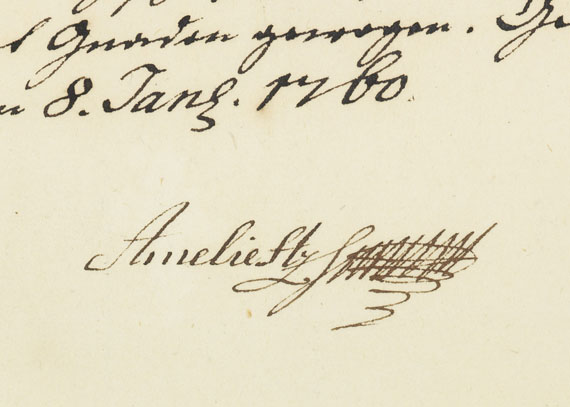 Gnaden gewogen. Ge
8. Jan. 1760
Amelie Hz